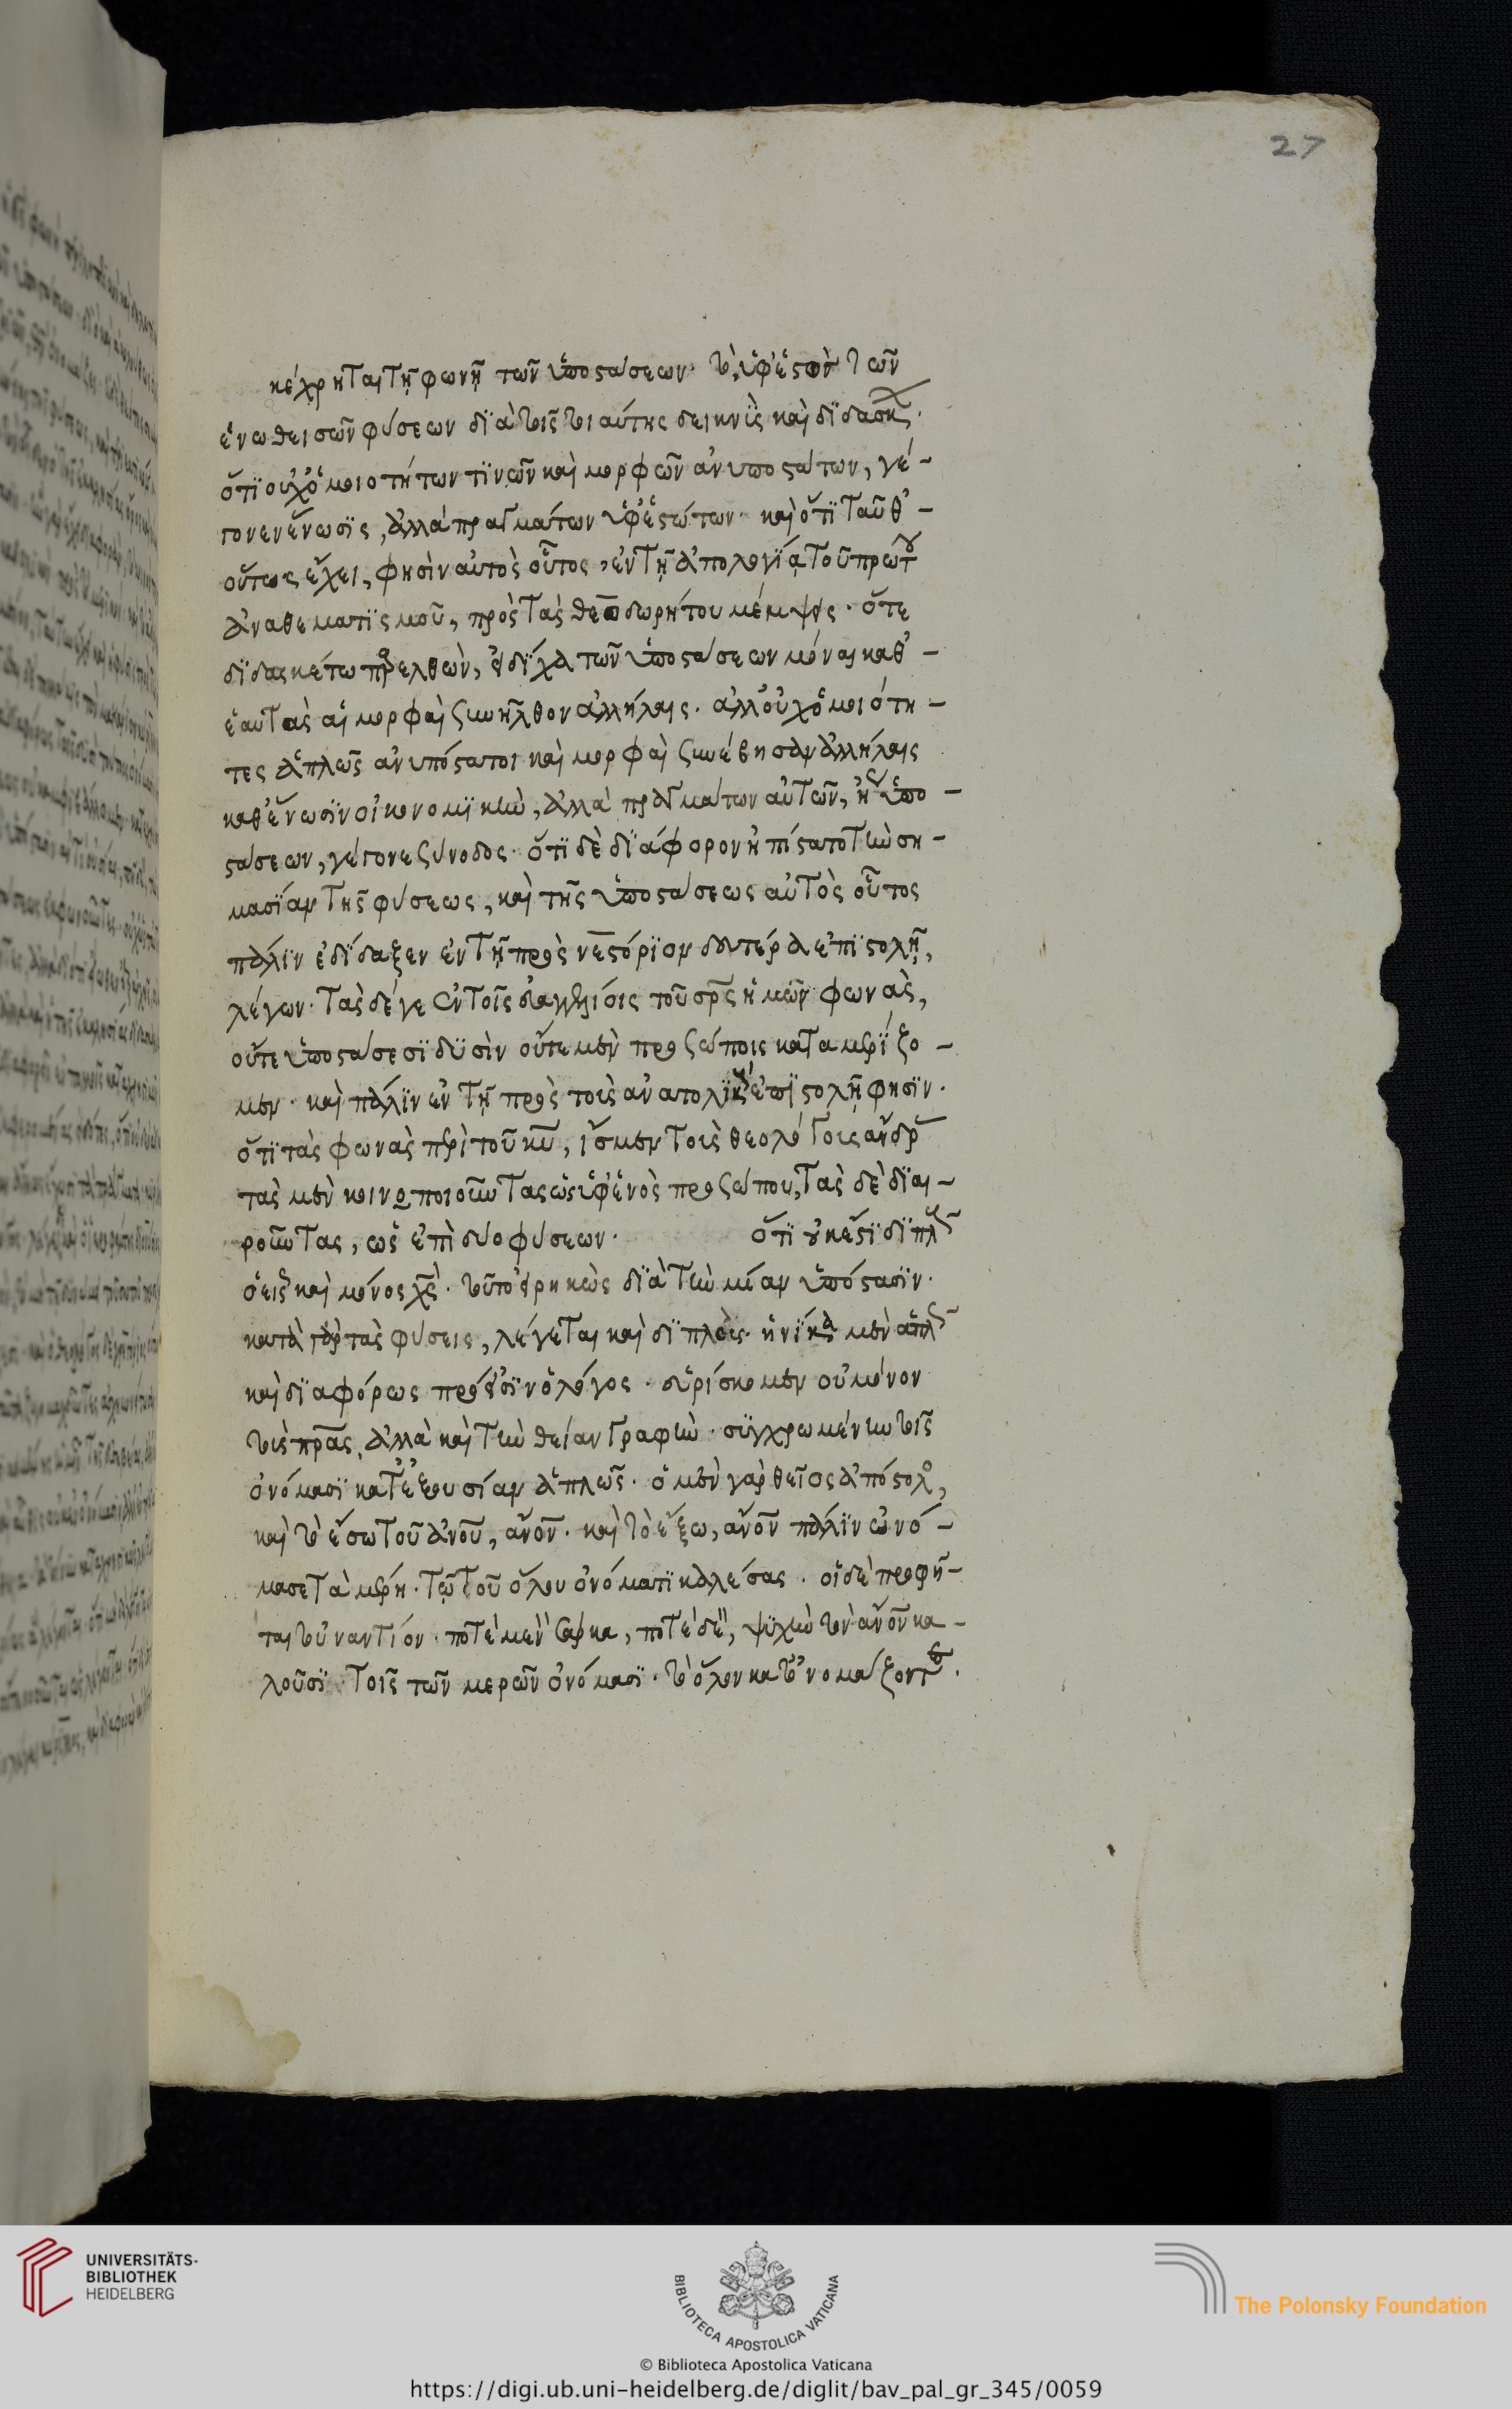 27
κέχρηται τῇ φωνῇ τῶν ὑποστάσεων· τὸ ὑφεστὸν τῶν
ἑνωθεισῶν φύσεων διὰ τῆς τοιαύτης δεικνὺς καὶ διδάσκων·
ὅτι οὐχ ὁμοιοτήτων τινῶν καὶ μορφῶν ἀνυποστάτων, γέ-
γονεν ἕνωσις, ἀλλὰ πραγμάτων ὑφεστώτων· καὶ ὅτι ταῦθ’
οὕτως ἔχει, φησὶν αὐτὸς οὗτος, ἐν τῇ ἀπολογίᾳ τοῦ πρώτου
ἀναθεματισμοῦ, πρὸς τὰς θεοδωρήτου μέμψεις· ὅτε
διδασκέτω παρελθὼν, οὐ δίχα τῶν ὑποστάσεων μόναι καθ’
ἑαυτὰς αἱ μορφαὶ συνῆλθον ἀλλήλαις· ἀλλ’ οὐχ ὁμοιότη-
τες ἁπλῶς ἀνυπόστατοι καὶ μορφαὶ συνέβησαν ἀλλήλαις
καθ’ ἕνωσιν οἰκονομικὴν, ἀλλὰ πραγμάτων αὐτῶν, ἤγουν ὑπο-
στάσεων, γέγονε σύνοδος· ὅτι δὲ διάφορον ἠπίστατο τὴν ση-
μασίαν τῆς φύσεως, καὶ τῆς ὑποστάσεως αὐτὸς οὗτος
πάλιν ἐδίδαξεν ἐν τῇ πρὸς νεστόριον δευτέρα ἐπιστολῇ,
λέγων· τὰς δέ γε ἐν τοῖς εὐαγγελίοις τοῦ σρς ἡμῶν φωνὰς,
οὔτε ὑποστάσεσι δυσὶν οὔτε μὲν προσώποις καταμερίζο-
μεν· καὶ πάλιν ἐν τῇ πρὸς τοὺς ἀνατολικοὺς ἐπιστολῇ φησίν·
ὅτι τὰς φωνὰς περὶ τοῦ κυ, ἴσμεν τοὺς θεολόγους ἄνδρας
τὰς μὲν κοινοποιοῦντας ὡς ἐφ’ ἑνὸς προσώπου, τὰς δὲ διαι-
ροῦντας, ὡς ἐπὶ δύο φύσεων· ὅτι οὐκ ἔστι διπλοῦς
ὁ εἷς καὶ μόνος χς· τοῦτο εἰρηκὼς διὰ τὴν μίαν ὑπόστασιν·
κατὰ γὰρ τὰς φύσεις, λέγεται καὶ διπλοῦς· ἡνίκα μὲν ἁπλῶς
καὶ διαφόρως πρόεισιν ὁ λόγος· εὑρίσκομεν οὐ μόνον
τοὺς πρας, ἀλλὰ καὶ τὴν θείαν γραφὴν· συγχρωμένην τοῖς
ὀνόμασι κατ’ ἐξουσίαν ἁπλῶς· ὁ μὲν γὰρ θεῖος ἀπόστολος,
καὶ τὸ ἔσω τοῦ ἀνου, ἄνον· καὶ τὸ ἔξω, ἄνον πάλιν ὠνό-
μασε τὰ μέρη· τῷ τοῦ ὅλου ὀνόματι καλέσας· οἱ δὲ προφῆ-
ται τοὐναντίον· ποτὲ μὲν σάρκα, ποτὲ δὲ, ψυχὴν τὸν ἄνον κα-
λοῦσι· τοῖς τῶν μερῶν ὀνόμασι· τὸ ὅλον κατονομάζοντες·
UNIVERSITÄTS-
BIBLIOTHEK
HEIDELBERG
BIBLIOTECA APOSTOLICA VATICANA
The Polonsky Foundation
© Biblioteca Apostolica Vaticana
https://digi.ub.uni-heidelberg.de/diglit/bav_pal_gr_345/0059